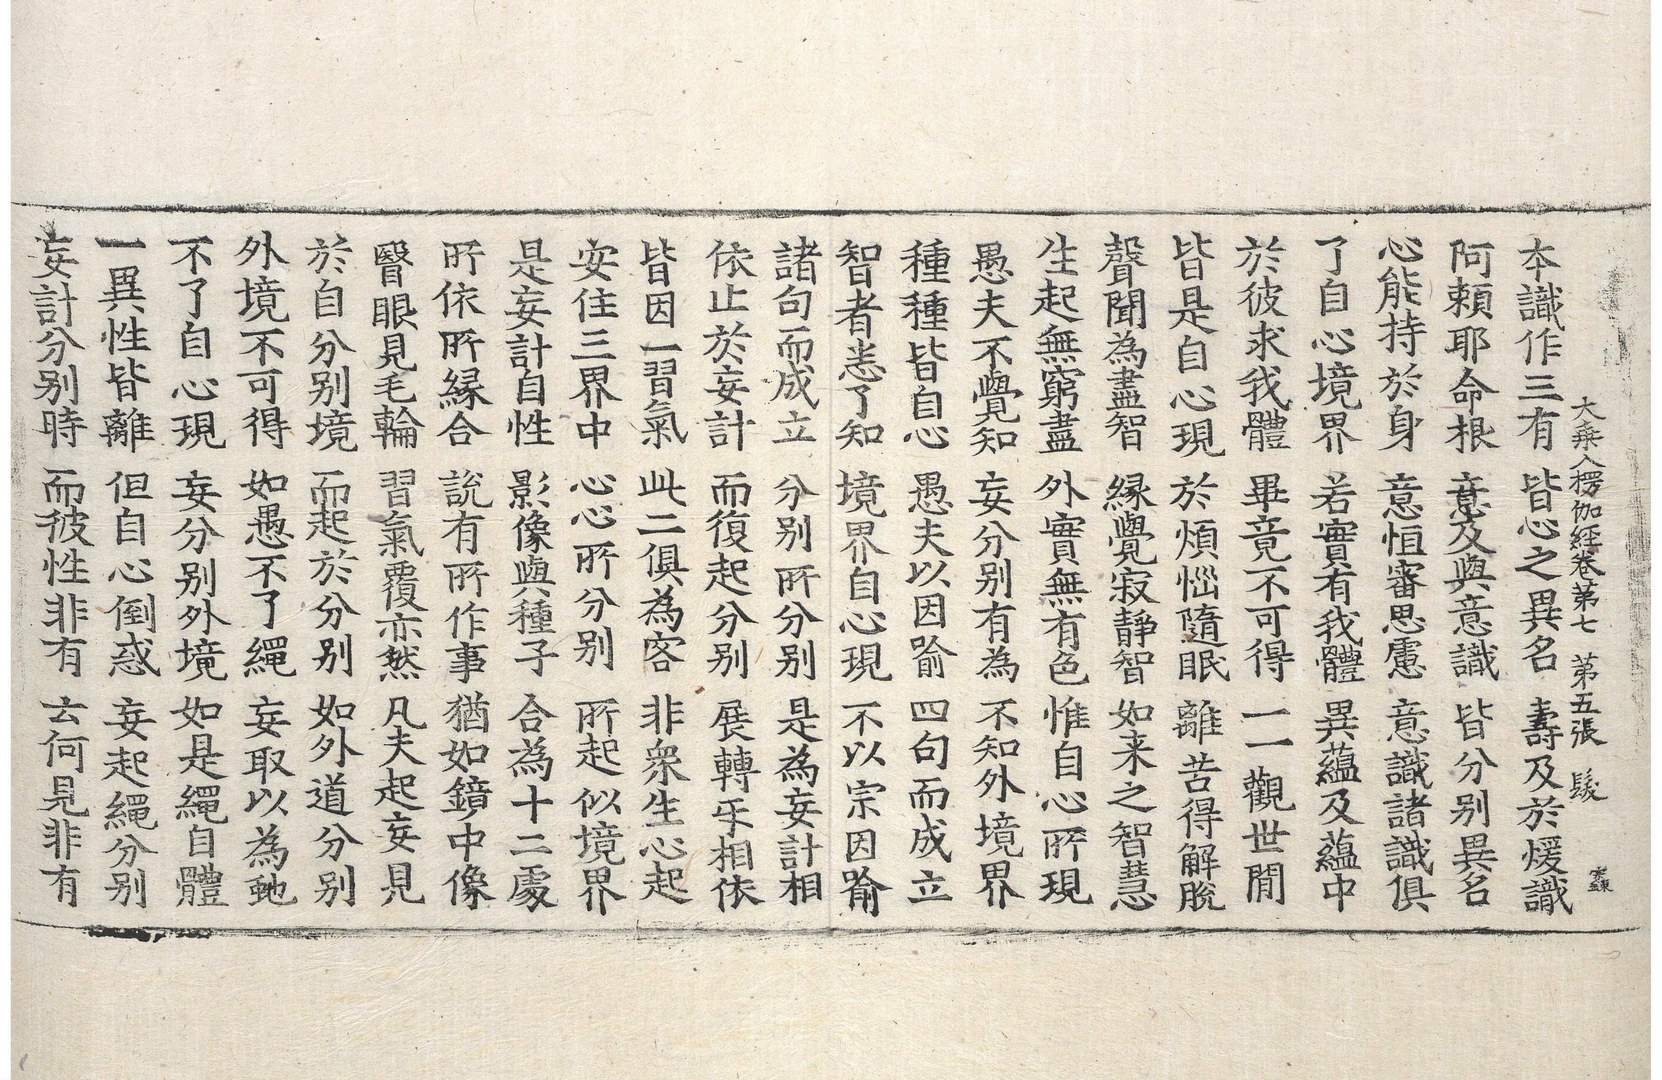 大乗入楞伽経巻第七 第五張 髮
本識作三有 皆心之異名 壽及於煖識
阿頼耶命根 意及與意識 皆分别異名
心能持於身 意恒審思慮 意識諸識俱
了自心境界 若實有我體 異蘊及蘊中
於彼求我體 畢竟不可得 一一觀世間
皆是自心現 於煩惱隨眠 離苦得解脫
聲聞為盡智 縁覺寂靜智 如来之智慧
生起無窮盡 外實無有色 惟自心所現
愚夫不覺知 妄分别有為 不知外境界
種種皆自心 愚夫以因喻 四句而成立
智者悉了知 境界自心現 不以宗因喻
諸句而成立 分别所分别 是為妄計相
依止於妄計 而復起分别 展轉互相依
皆因一習氣 此二俱為客 非衆生心起
安住三界中 心心所分别 所起似境界
是妄計自性 影像與種子 合為十二處
所依所縁合 說有所作事 猶如鏡中像
瞖眼見毛輪 習氣覆亦然 凡夫起妄見
於自分别境 而起於分别 如外道分别
外境不可得 如愚不了繩 妄取以為虵
不了自心現 妄分别外境 如是繩自體
一異性皆離 但自心倒惑 妄起繩分别
妄計分别時 而彼性非有 云何見非有